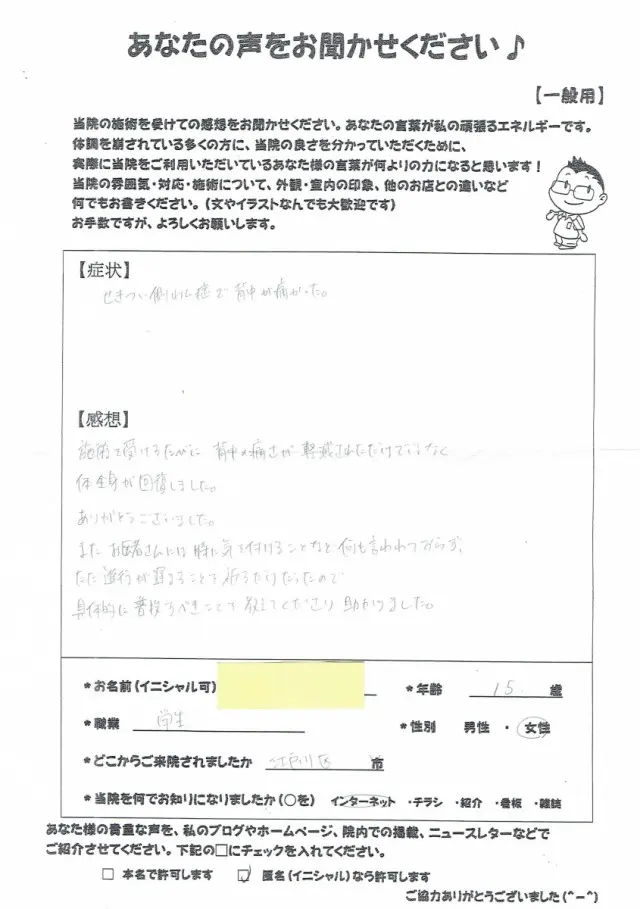 あなたの声をお聞かせください♪
【一般用】
当院の施術を受けての感想をお聞かせください。あなたの言葉が私の頑張るエネルギーです。
体調を崩されている多くの方に、当院の良さを分かっていただくために、
実際に当院をご利用いただいているあなた様の言葉が何よりの力になると思います！
当院の雰囲気・対応・施術について、外観・室内の印象、他のお店との違いなど
何でもお書きください。（文やイラストなんでも大歓迎です）
お手数ですが、よろしくお願いします。
【症状】
せきつい側わん症で背中が痛かった。
【感想】
施術を受けるたびに 背中の痛さが軽減されただけでなく
体全身が回復しました。
ありがとうございました。
また お医者さんには 特に気を付けることなど 何も言われておらず、
ただ進行が止まることを祈るだけだったので
具体的に普段すべきことを教えてくださり 助かりました。
*お名前（イニシャル可）
*年齢 15 歳
*職業 学生
*性別 男性 ・ 女性
*どこからご来院されましたか 江戸川区 市
*当院を何でお知りになりましたか（○を） インターネット ・チラシ ・紹介 ・看板 ・雑誌
あなた様の貴重な声を、私のブログやホームページ、院内での掲載、ニュースレターなどで
ご紹介させてください。下記の□にチェックを入れてください。
□ 本名で許可します ☑ 匿名（イニシャル）なら許可します
ご協力ありがとうございました（^－^）